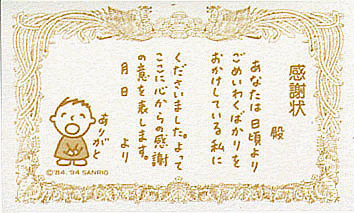 感謝状
殿
あなたは日頃より
ごめいわくばかりを
おかけしている私に
くださいました。よって
ここに心からの感謝
の意を表します。
月 日
より
ありがと
©'84,'94 SANRIO